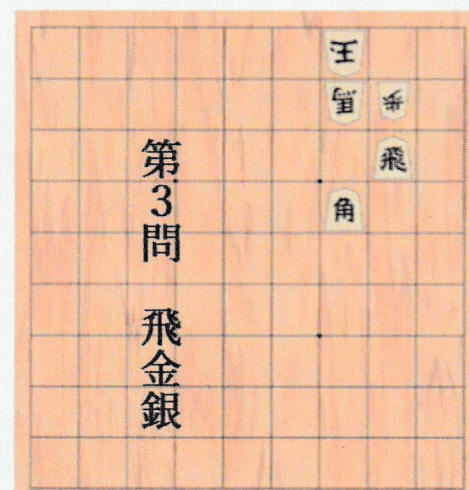 第3問　飛金銀
王
馬
歩
飛
角